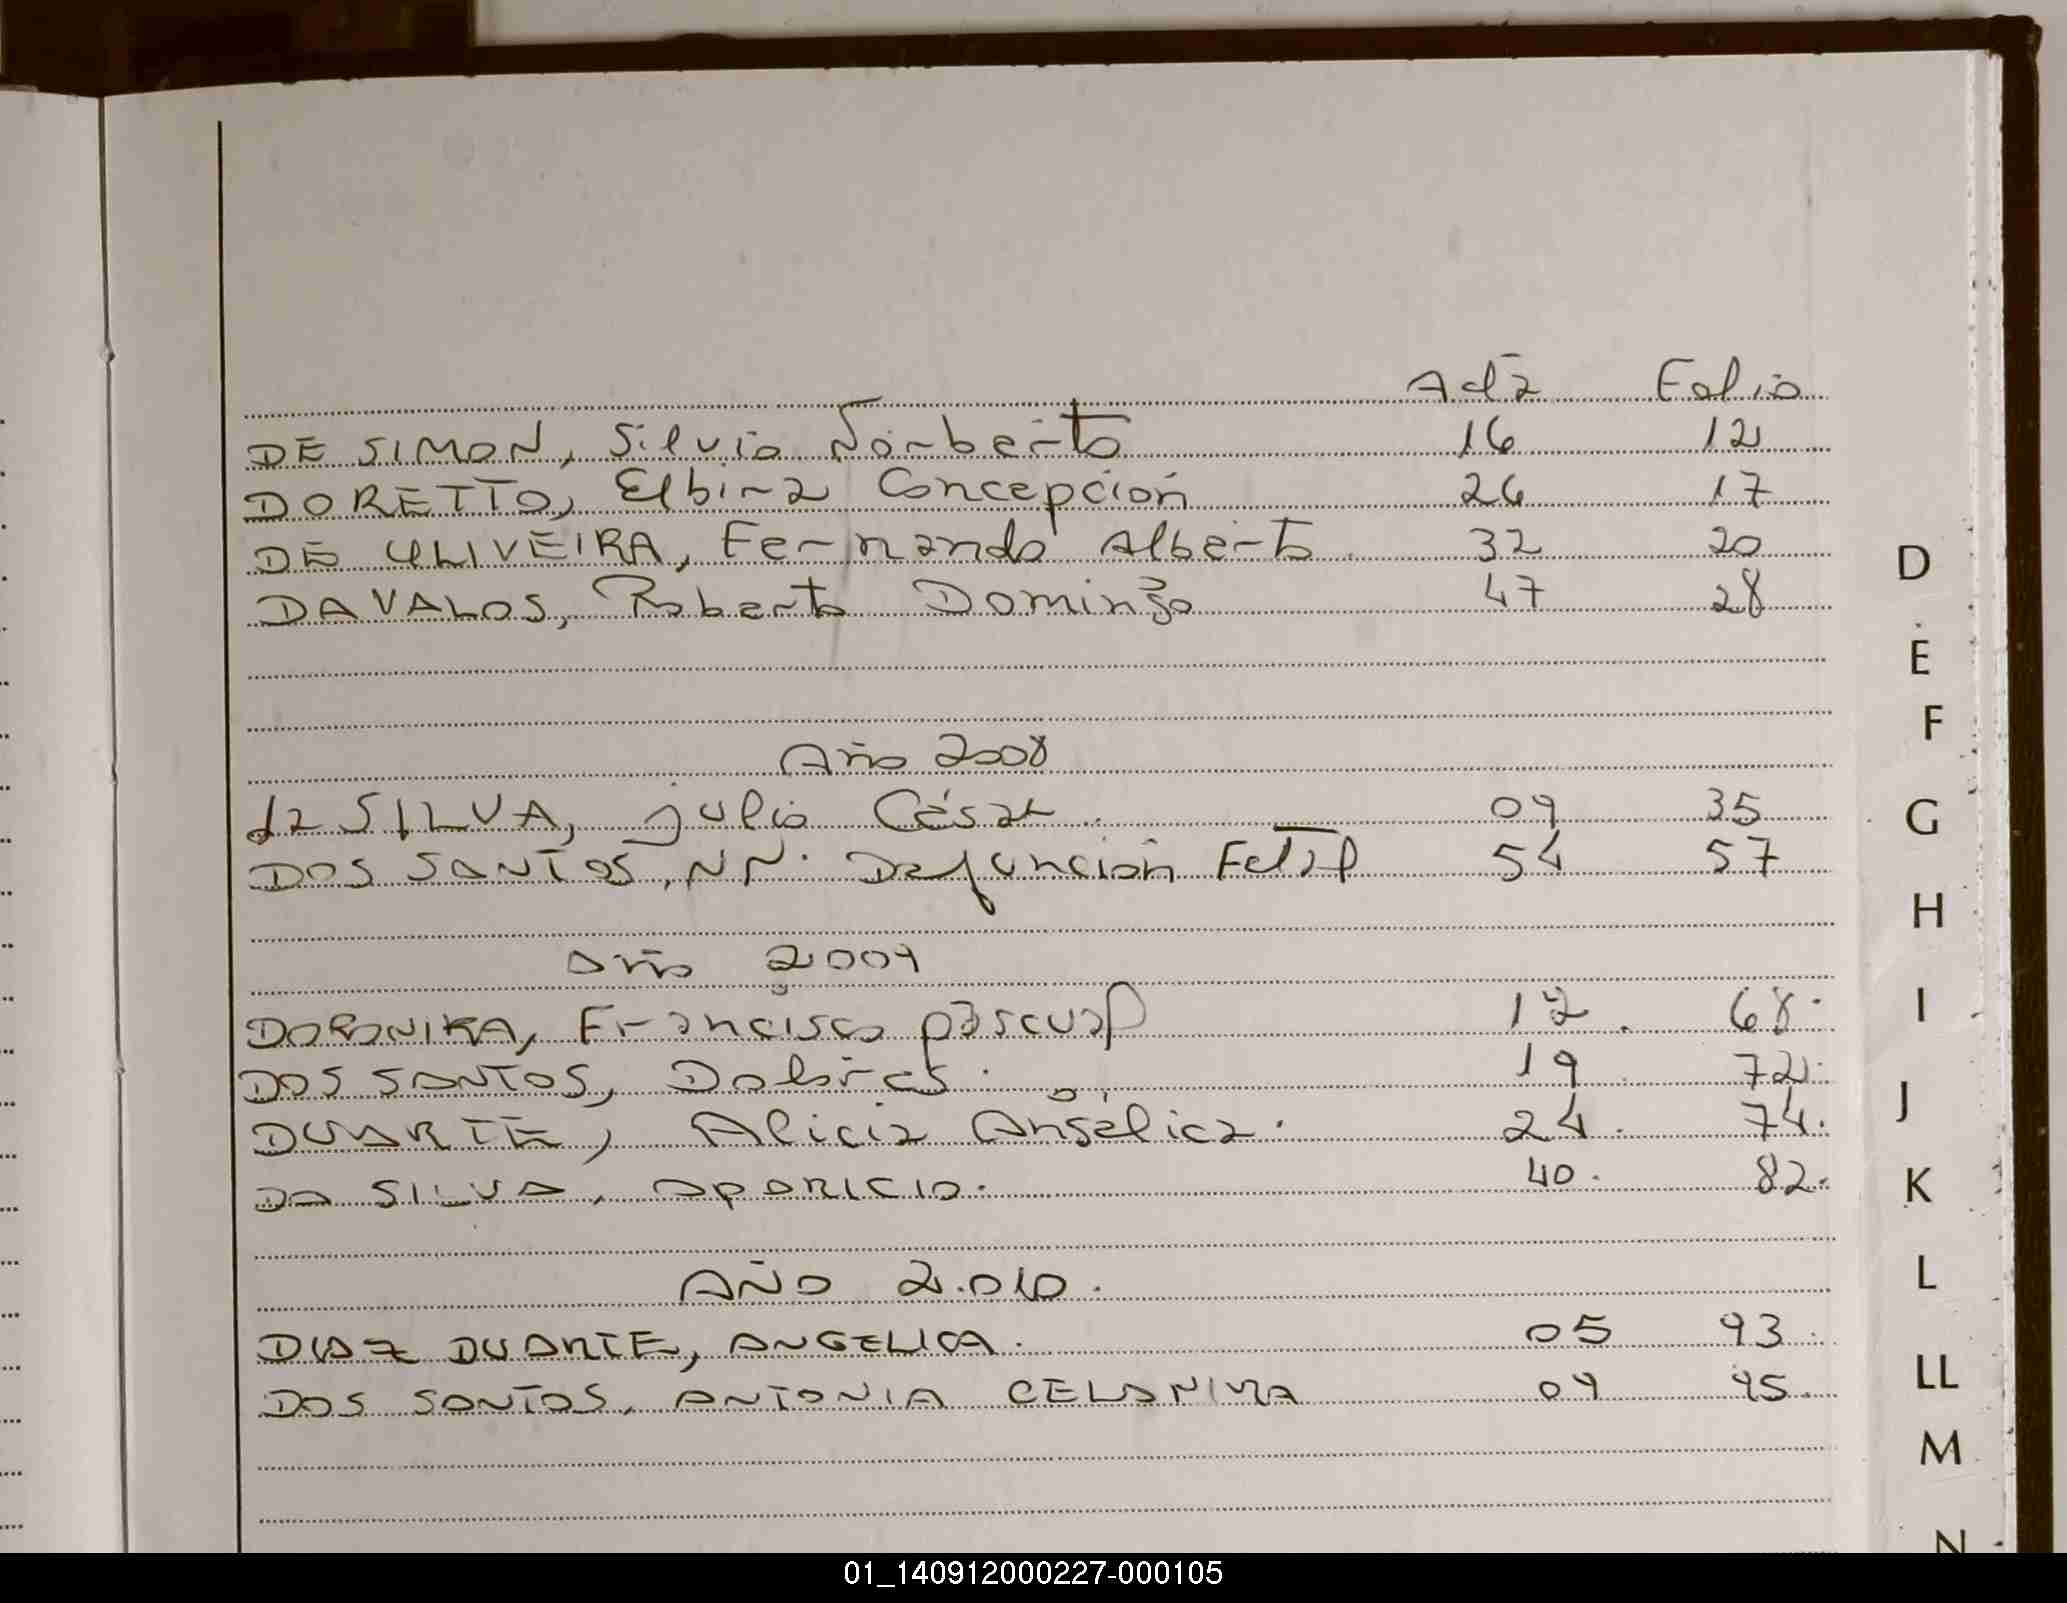 Acta Folio
DE SIMON, Silvio Norberto 16 12
DORETTO, Elbira Concepción 26 17
DE OLIVEIRA, Fernando Alberto 32 20
DAVALOS, Roberto Domingo 47 28
Año 2008
da SILVA, julio César 09 35
DOS SANTOS, NN. Defunción Fetal 54 57
Año 2009
DORONIKA, Francisco pascual 12. 68.
DOS SANTOS, Dolores. 19 72.
DUARTE, Alicia Angélica. 24. 74.
DA SILVA, APARICIO. 40. 82.
AÑO 2.010.
DIAZ DUARTE, ANGELICA. 05 93.
DOS SANTOS, ANTONIA 09 95.
D
E
F
G
H
I
J
K
L
LL
M
N
01_140912000227-000105